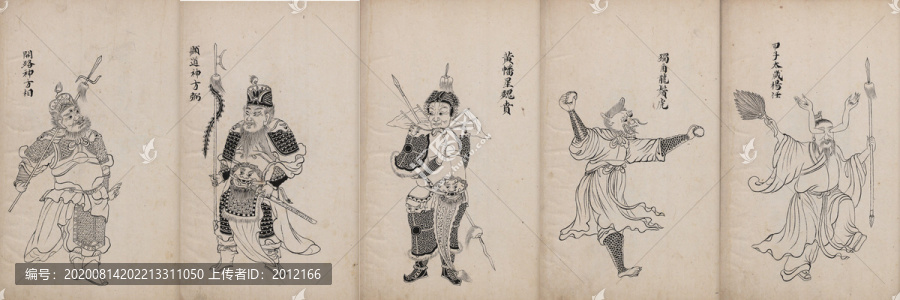 開路神方相
顯道神方弼
黃幡星魏賁
獨角龍鬚虎
甲子太歲楊任
编号: 20200814202213311050 上传者ID: 2012166